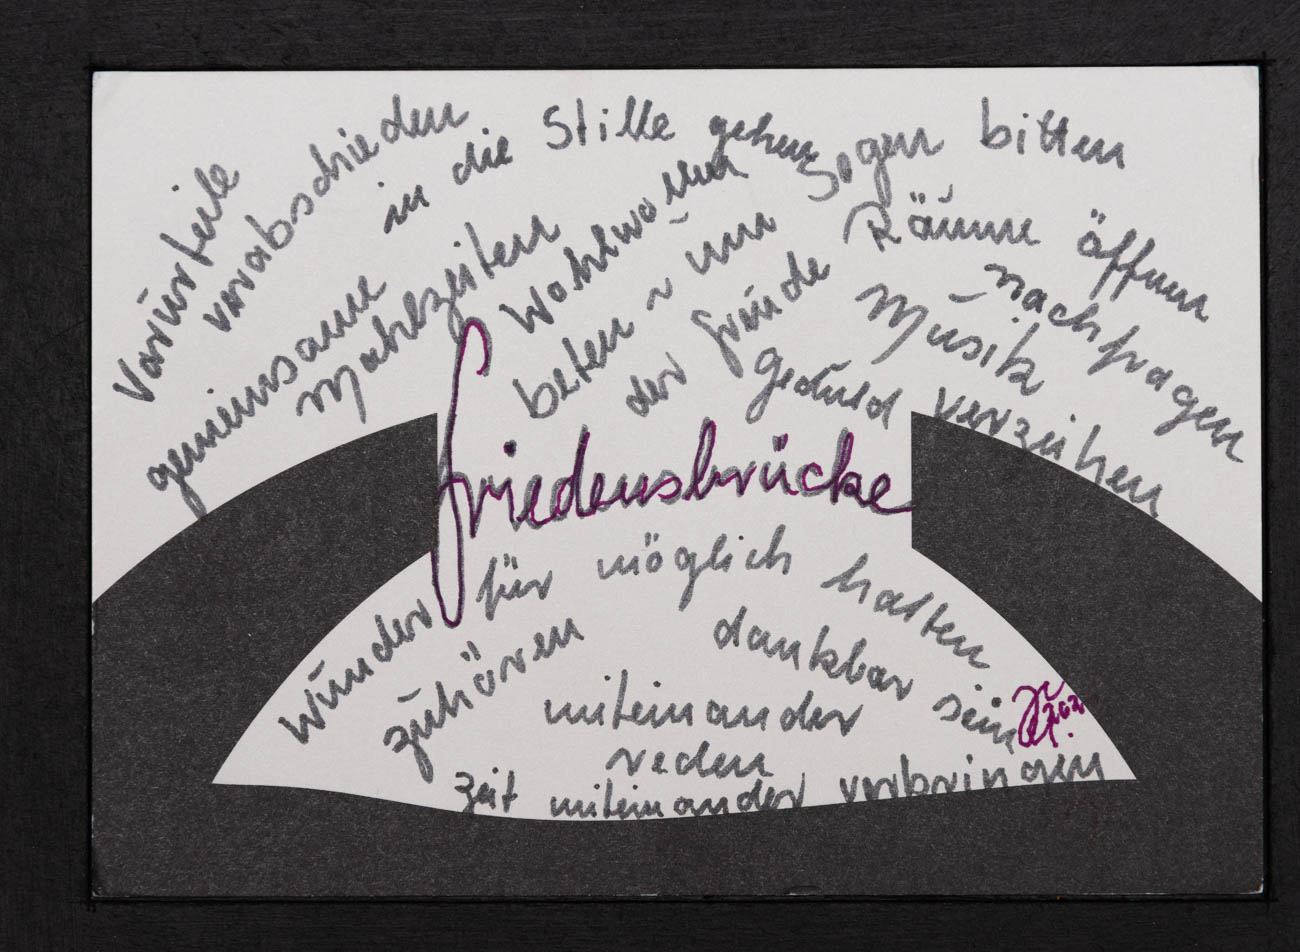 Vorurteile
verabschieden
in die Stille gehen
gemeinsame
Mahlzeiten
Wohlwollen
beten ~ um Segen bitten
der Freude Räume öffnen
nachfragen
Musik
Geduld
verzeihen
Friedensbrücke
Wunder für möglich halten
zuhören
dankbar sein
miteinander
reden
Zeit miteinander verbringen